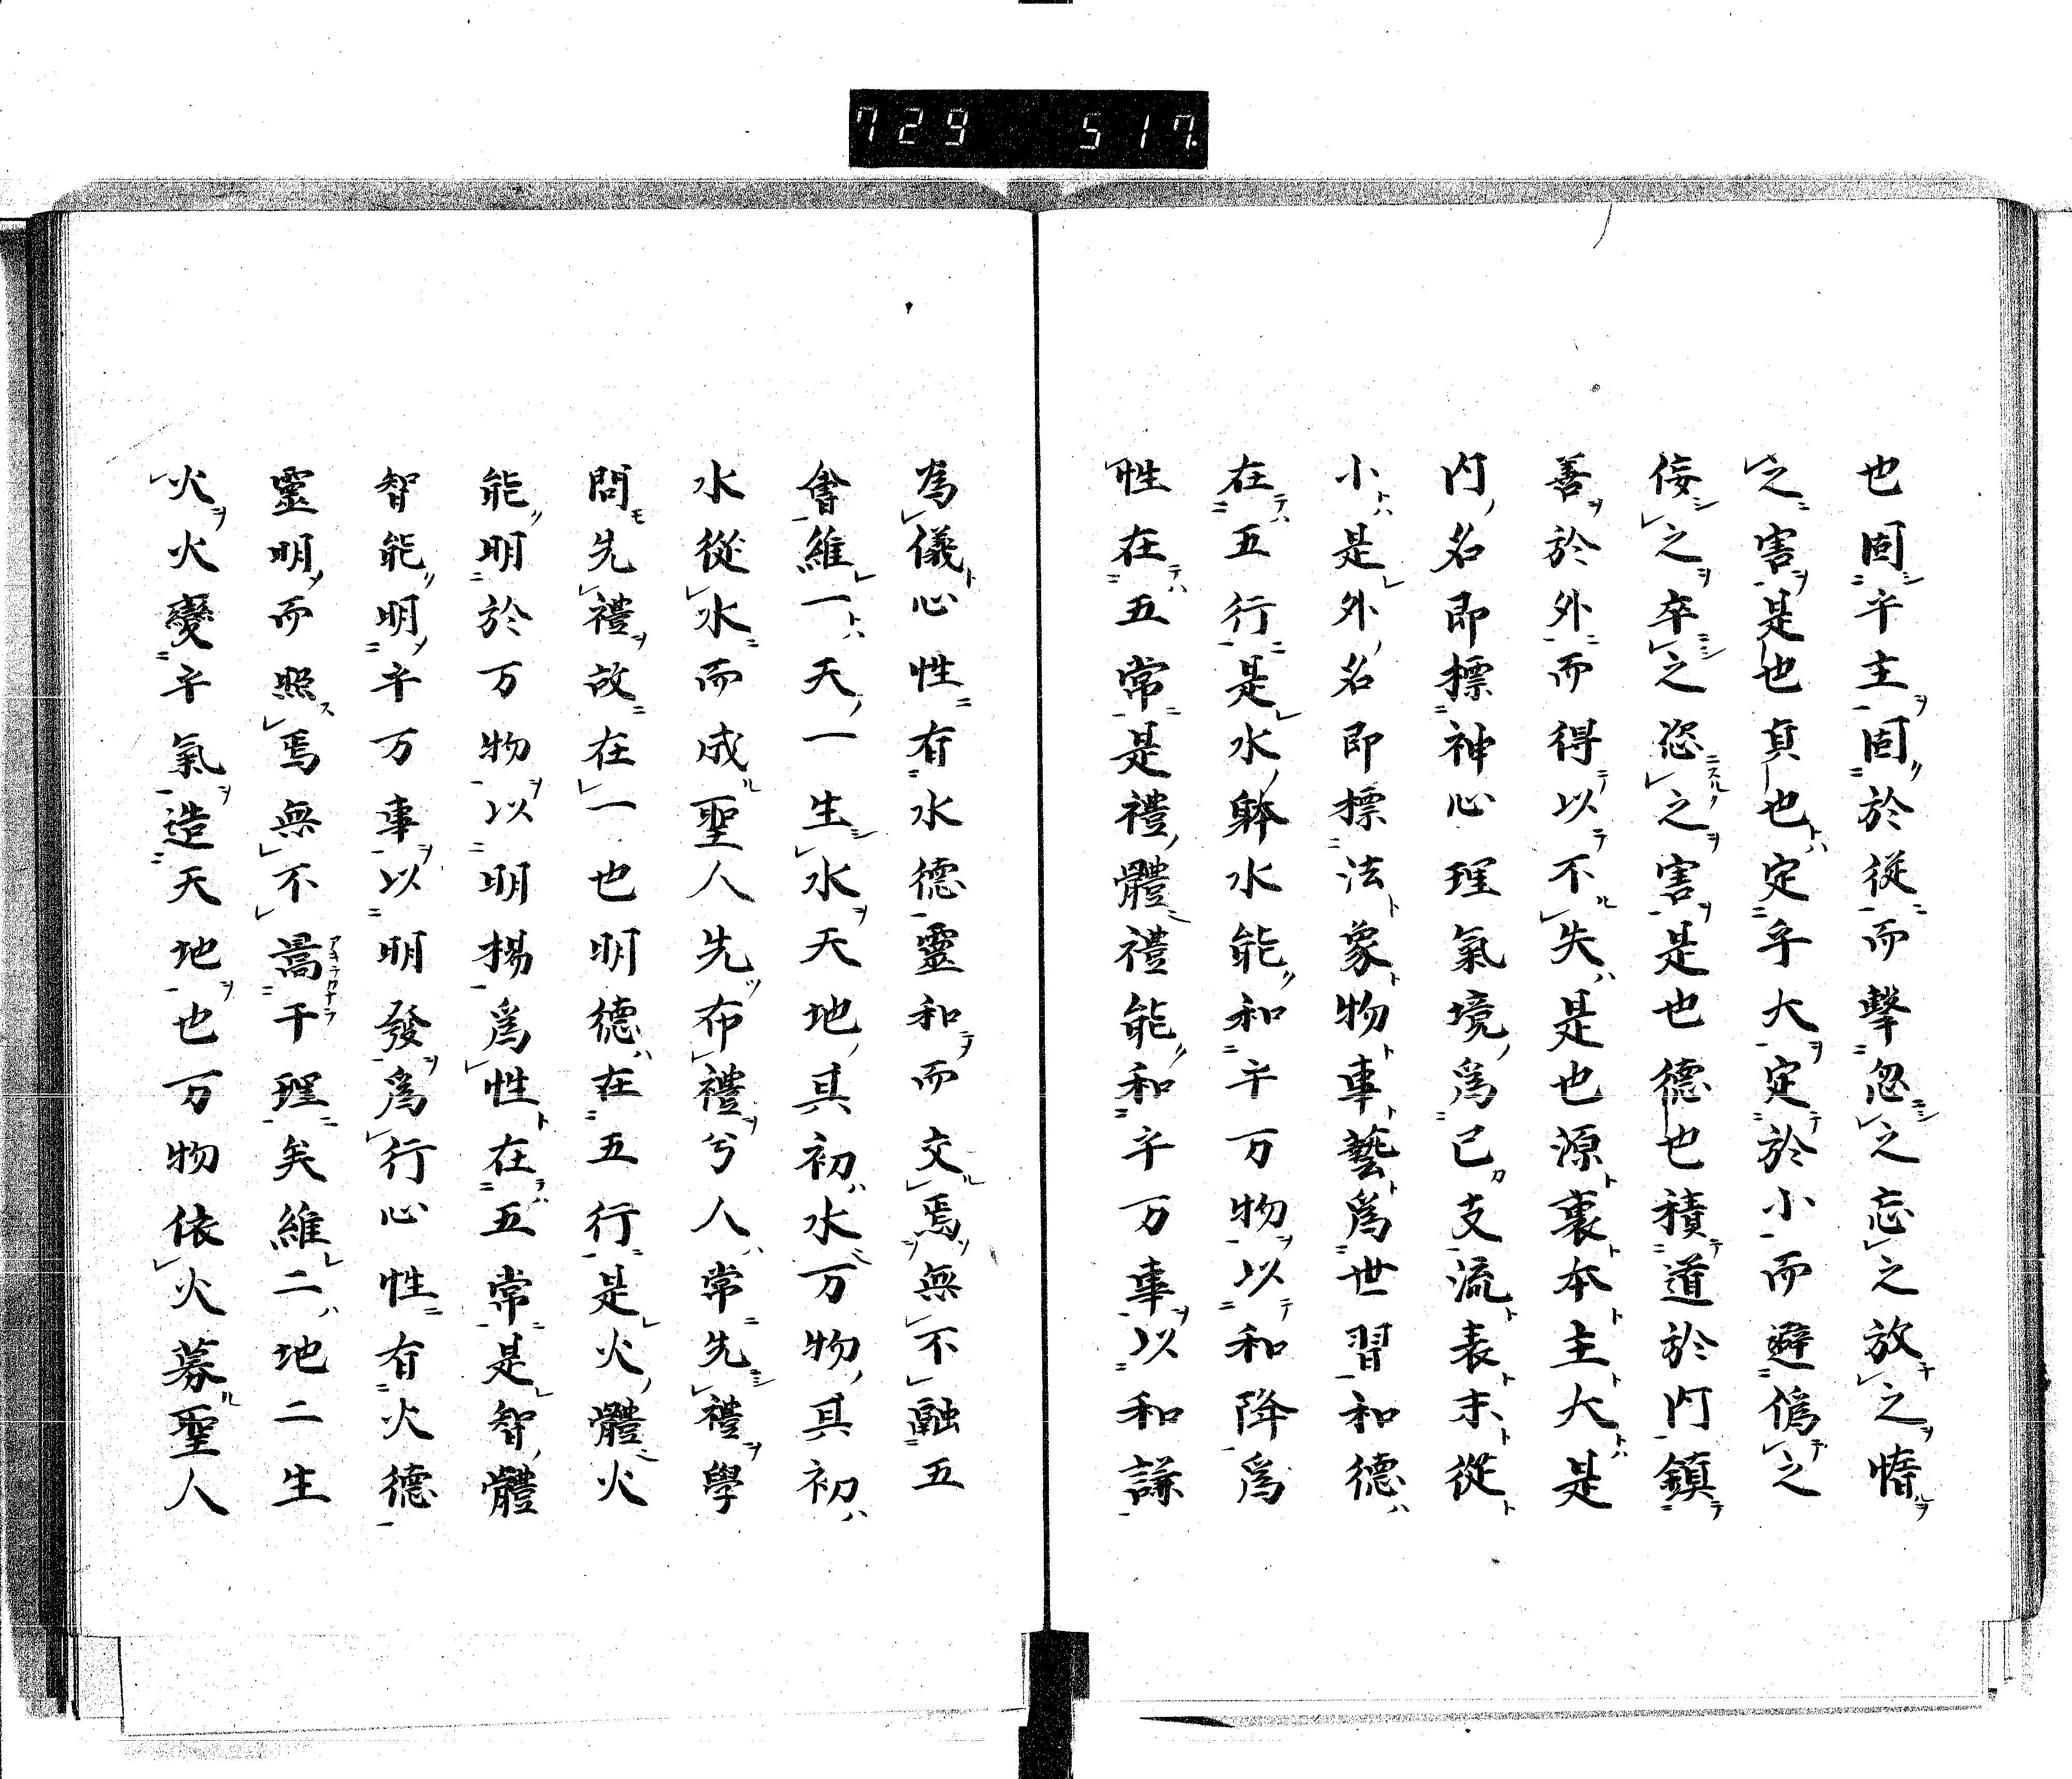 729 517.
也固乎主固於従而擊忽之忘之放之惰
之害是也貞也定乎大定於小而避偽之
侫之卒之恣之害是也德也積道於内鎮
善於外而得以不失是也源裏本主大是
内名即標神心理氣境爲已支流表末従
小是外名即標法象物事藝爲世習和德
在五行是水躰水能和乎万物以和降爲
性在五常是禮體禮能和乎万事以和謙
為儀心性有水德靈和而交焉無不融五
會維一天一生水天地其初水万物其初
水從水而成聖人先布禮兮人常先禮學
問先禮故在一也明德在五行是火體火
能明於万物以明揚爲性在五常是智體
智能明乎万事以明發爲行心性有火德
靈明而照焉無不暠干理矣維二地二生
火火變乎氣造天地也万物依火募聖人